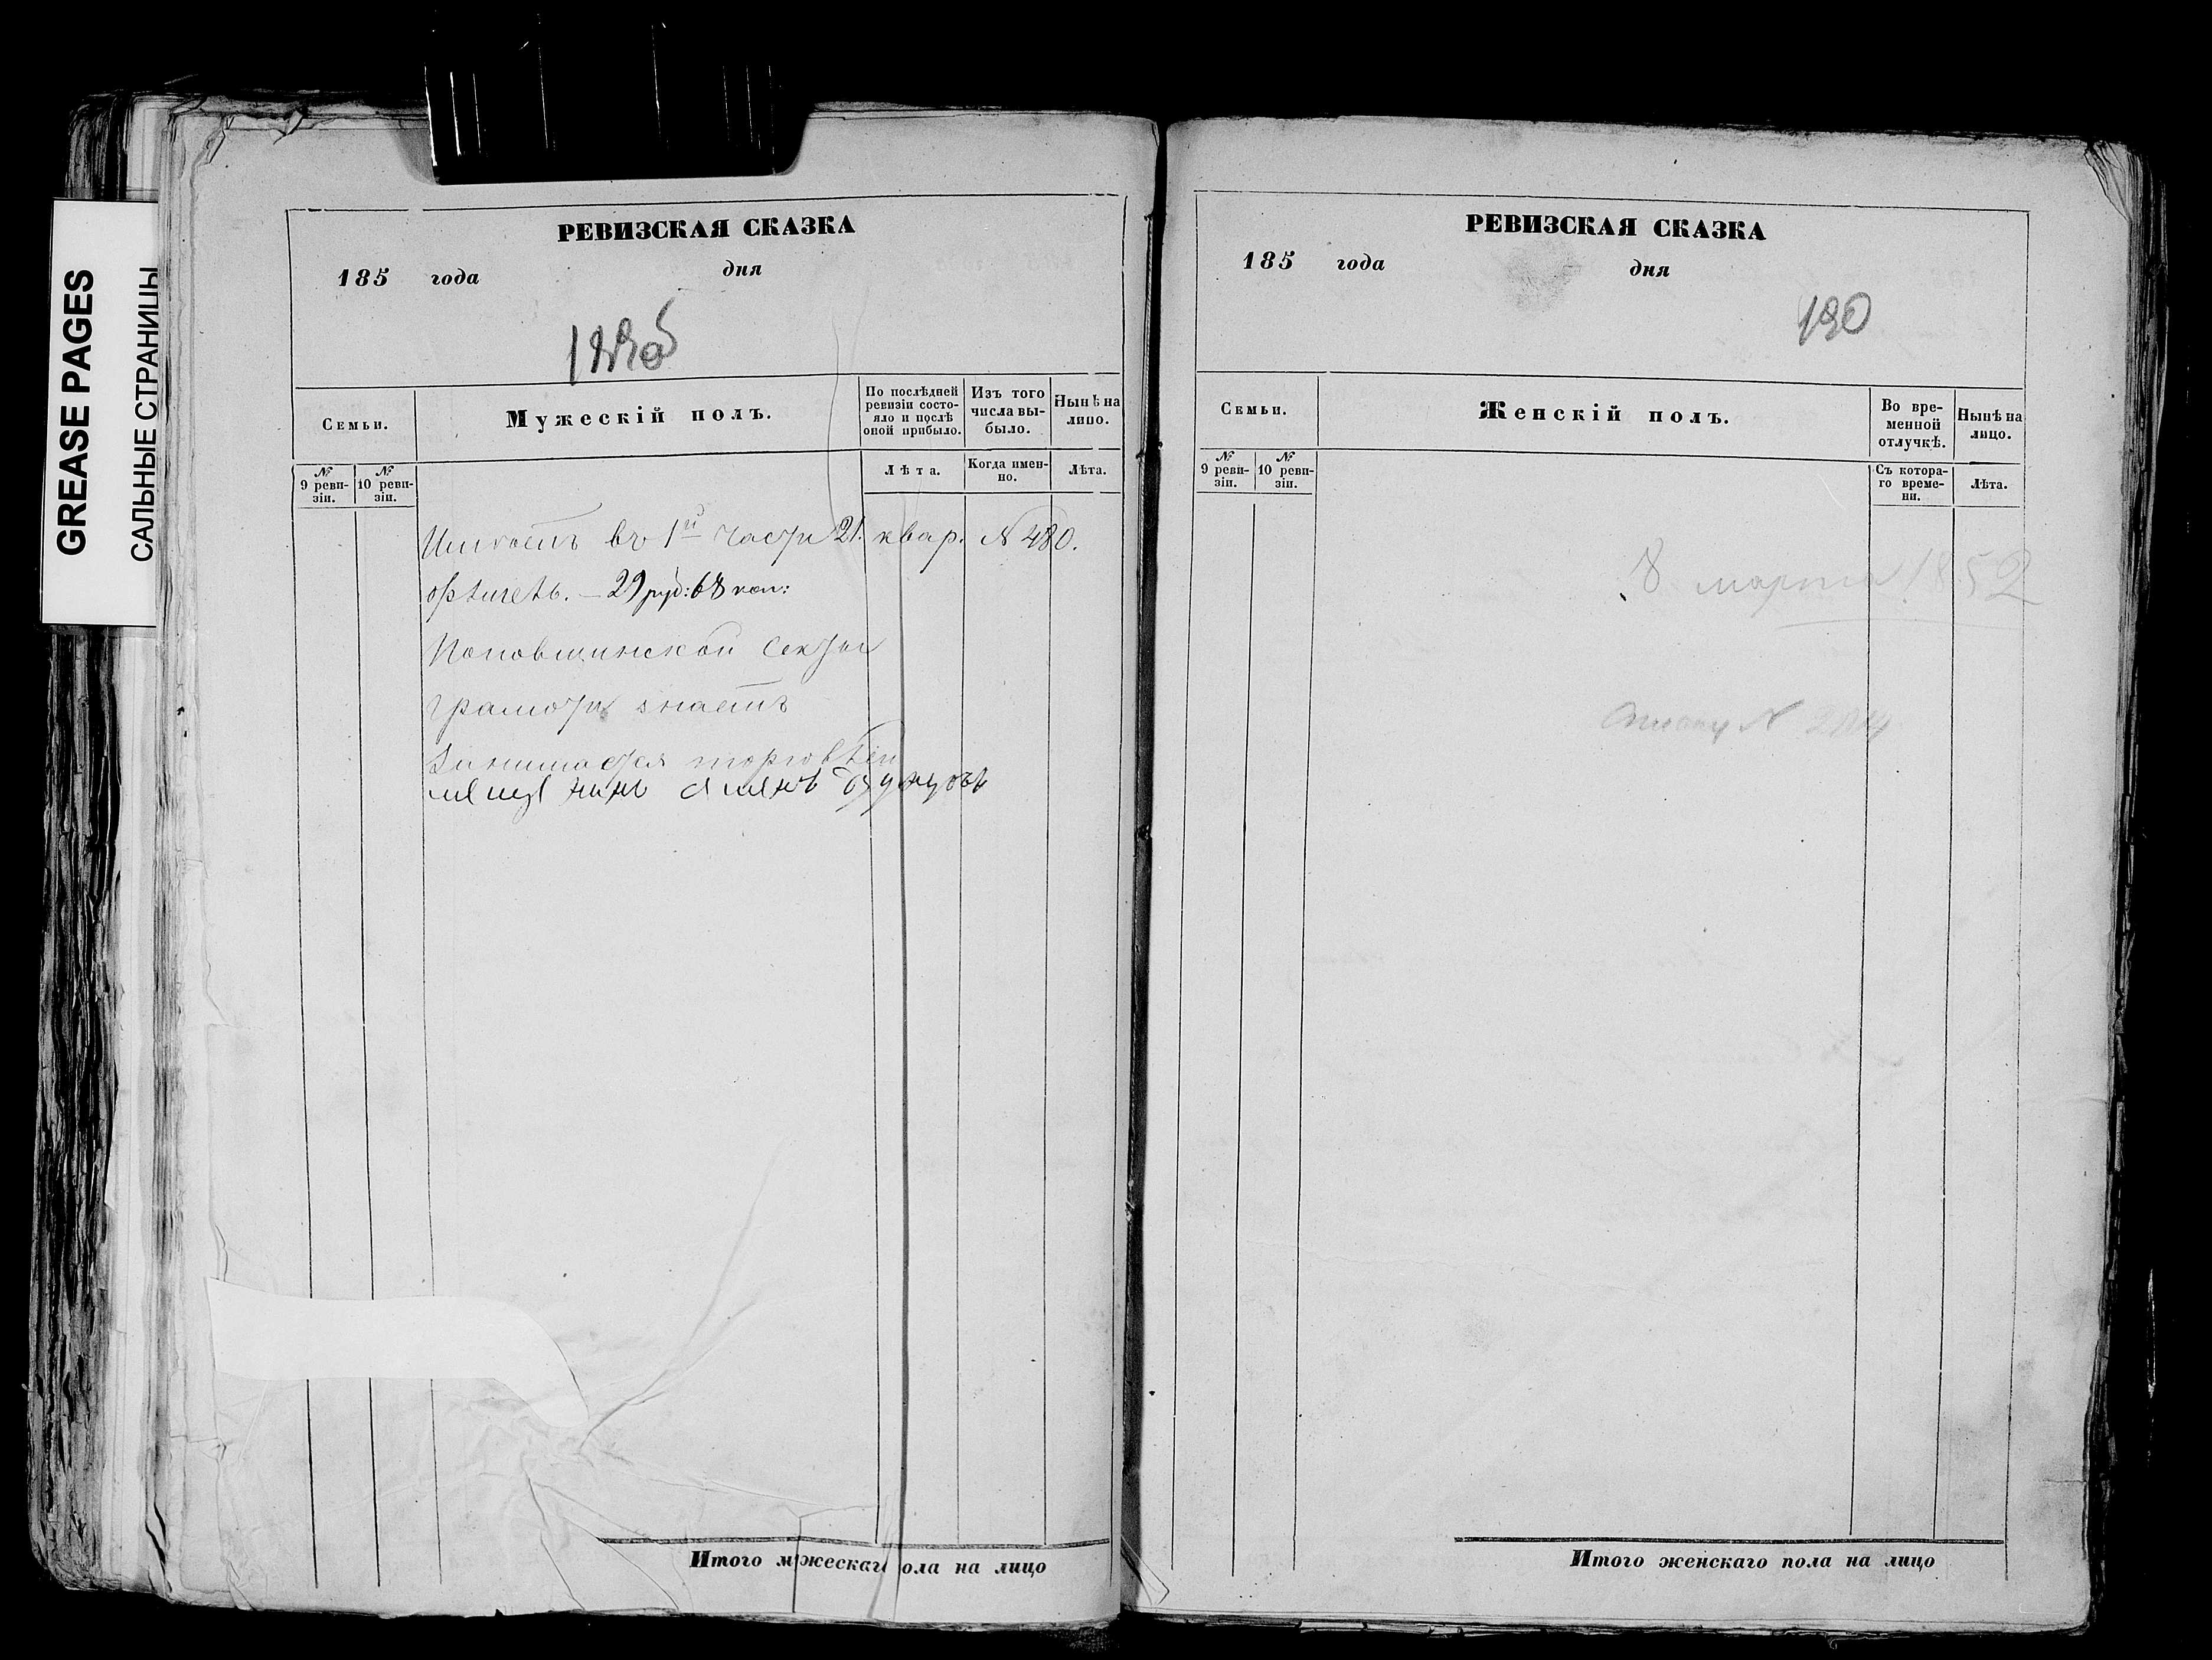 GREASE PAGES
САЛЬНЫЕ СТРАНИЦЫ
РЕВИЗСКАЯ СКАЗКА
185 года дня
Семьи.
Мужескій полъ.
По послѣдней ревизіи состояло и послѣ оной прибыло.
Изъ того числа выбыло.
Нынѣ на лицо.
№ 9 ревизіи.
№ 10 ревизіи.
Лѣта.
Когда именно.
Лѣта.
въ 1й части 21. квар. № 480.
29 руб: 68 коп:
Поповщинской секты
грамоти знаетъ
Занимается торговлей
Итого мужескаг ола на лицо
РЕВИЗСКАЯ СКАЗКА
185 года дня
190
Семьи.
Женскій полъ.
Во временной отлучкѣ.
Нынѣ на лицо.
№ 9 ревизіи.
№ 10 ревизіи.
Съ котораго времени.
Лѣта.
8 марта 1852
Итого женскаго пола на лицо